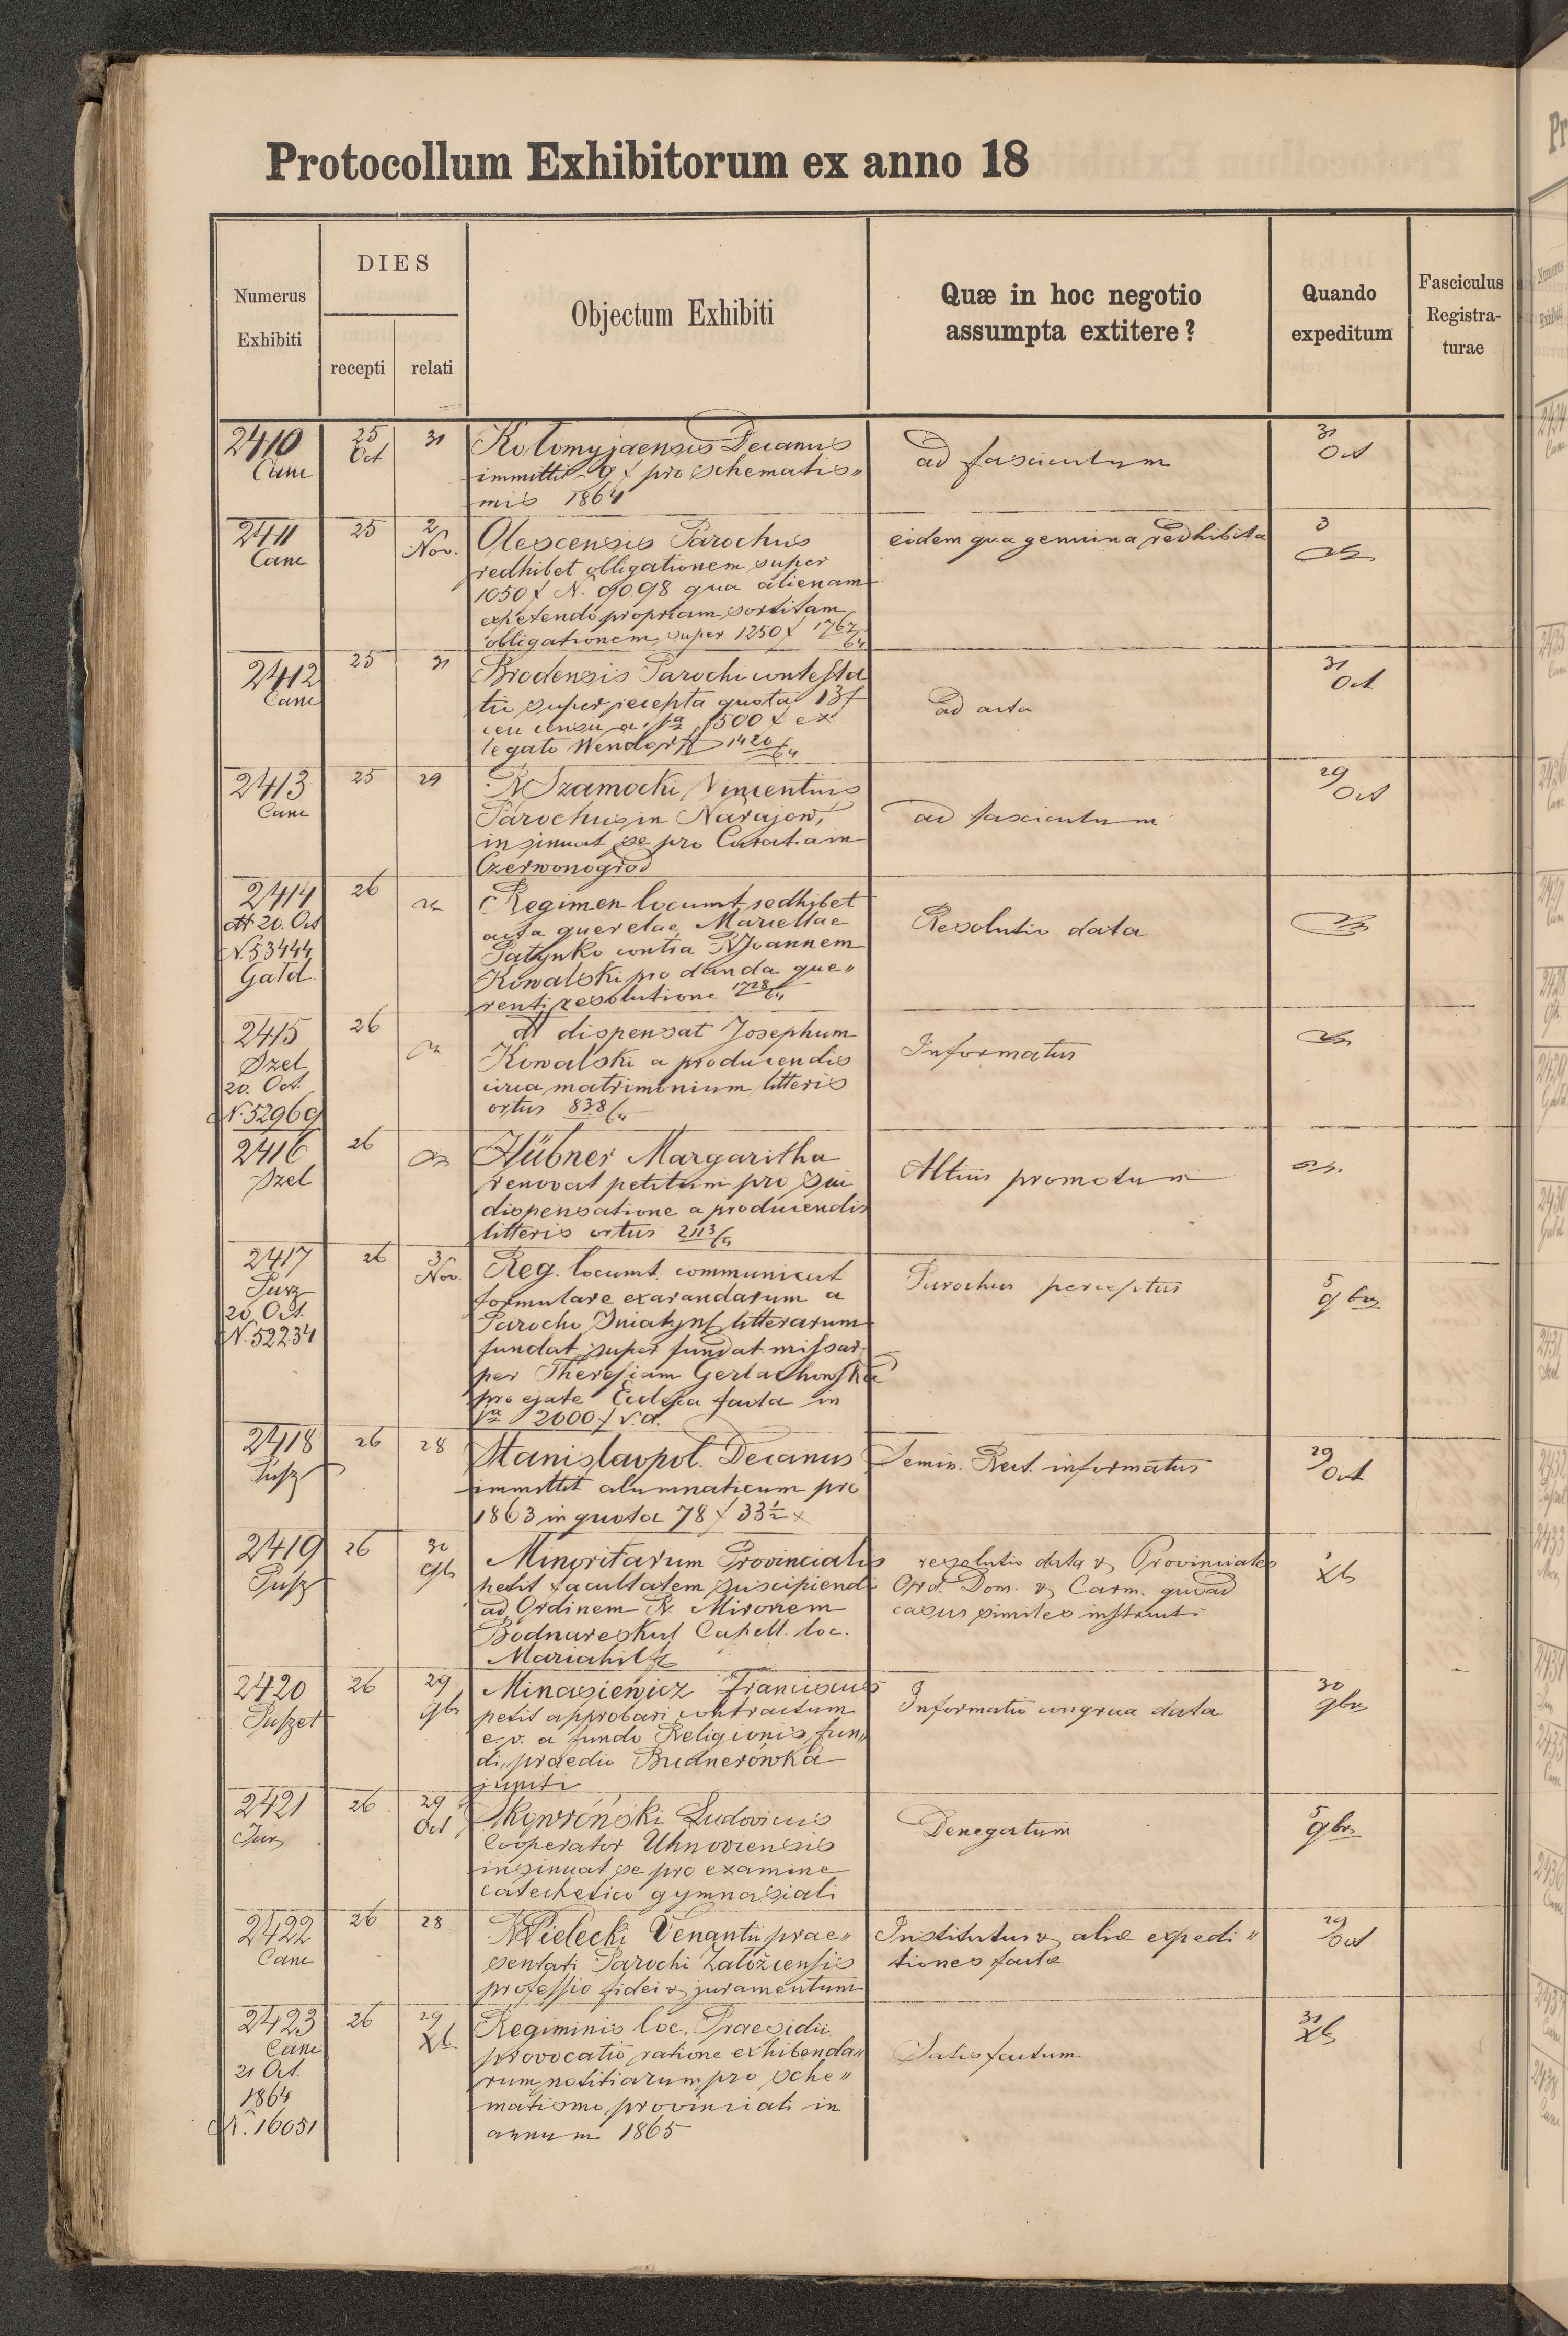 Protocollum Exhibitorum ex anno 18
Numerus Exhibiti
DIES
recepti
relati
Objectum Exhibiti
Quæ in hoc negotio
assumpta extitere?
Quando
expeditum
Fasciculus
Registra-
turae
2410
Canc
25
Oct
31
Kolomyjaensis Decanus
immittit 9 f pro schematis„
mis 1864
ad fasciculum
31
Oct
2411
Canc
25
2
Nov.
Olescensis Parochus
redhibet obligationem super
1050 f N. 9098 qua alienam
expetendo propriam sortitam
obligationem super 1250 f 1767/64
eidem qua genuina redhibita
3
2412
Canc
25
31
Brodensis Parochi contesta
tio super recepta quota 13 f
ceu censu a 500 f ex
legato Wendorff 1420/64
ad acta
31
Oct
2413
Canc
25
29
R Szamocki Vincentius
Parochus in Narajow,
insinuat se pro Curatiam
Czerwonogrod
ad fasciculum
29
Oct
2414
20. Oct
N. 53444
26
Regimen locumt redhibet
acta querelae Mariellae
Patynko contra R Joannem
Kowalski pro danda que„
renti resolutione 1728/64
Resolutio data
2415
Szel
20. Oct.
N. 52969
26
dt dispensat Josephum
Kowalski a producendis
circa matrimonium litteris
ortus 838/64
Informatus
2416
Szel
26
Hübner Margaritha
renovat petitum pro sui
dispensatione a producendis
litteris ortus 2113/64
Altius promotum
2417
20 Oct.
N. 52234
26
3
Nov.
Reg. locumt. communicat
formulare exarandarum a
Parocho Sniatyns litterarum
fundat super fundat. missar
per Theresiam Gerlachowska
pro ejate Ecclesia facta in
2000 f v.a.
Parochus perceptus
5
9br
2418
26
28
Stanislavpol. Decanus
immittit alumnaticum pro
1863 in quota 78 f 33½ x
Semin. Rect. informatus
29
Oct
2419
26
30
9b
Minoritarum Provincialis
petit facultatem suscipiendi
ad Ordinem R. Mironem
Bodnareskul Capell. loc.
Mariahilf
resolutio data & Provinciales
Ord. Dom. & Carm. quoad
casus similes instructi
1
Xb
2420
26
29
9br
Minasiewicz Franciscus
petit approbari contractum
e. v. a fundo Religionis fun„
di, praedio Budnerówka
juniti
Informatio congrua data
30
9br
2421
26
29
Oct
Skowroński Ludovicus
Cooperator Uhnoviensis
insinuat se pro examine
catechetico gymnasiali
Denegatum
5
9br
2422
Canc
26
28
R Wielecki Venantii prae„
sentati Parochi Załoźcensis
professio fidei & juramentum
Institutus & aliæ expedi„
tiones factæ
29
Oct
2423
Canc
21 Oct.
1864
N. 16051
26
29
Xb
Regiminis loc. Praesidii
provocatio ratione exhibenda„
rum notitiarum pro sche„
matismo provinciali in
annum 1865
Satisfactum
31
Xb